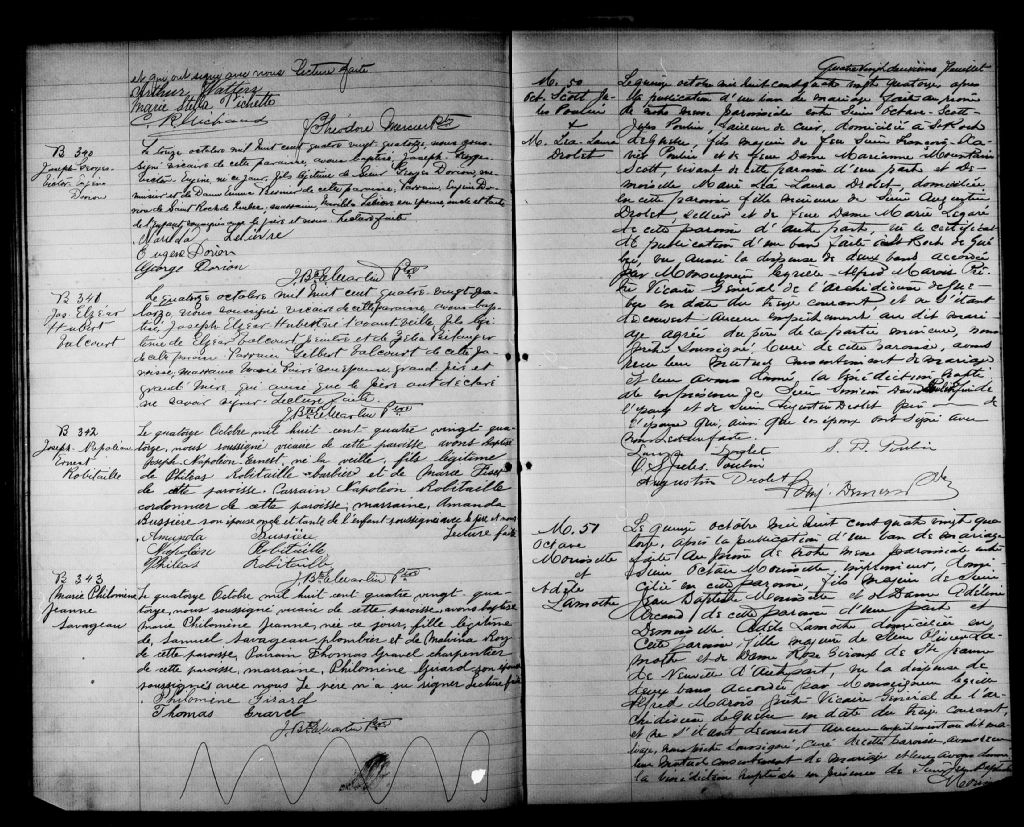 et qui ont signé avec nous Lecture faite
Arthur Watters
Marie Stella Pichette
Théodore Mercier Ptre
B 340
Joseph Georges
Victor Eugène
Dorion
Le treize octobre mil huit cent quatre vingt quatorze, nous sous-
signé vicaire de cette paroisse, avons baptisé Joseph Georges
Victor Eugène, né ce jour, fils légitime de Sieur Georges Dorion,
et de Dame Emma Bernier de cette paroisse, Parrain, Eugène Do-
rion de Saint Roch de Québec, marraine, son épouse, oncle et tante
de l'enfant soussignés avec le père et nous. Lecture faite
Lelièvre
Eugène Dorion
George Dorion
J. Bte E. Martin Ptre
B 341
Jos Elzéar
Hubert
Valcourt
Le quatorze octobre mil huit cent quatre vingt qua-
torze, nous soussigné vicaire de cette paroisse, avons bap-
tisé, Joseph Elzéar Hubert né l'avant veille, fils légi-
time de Elzéar Valcourt, peintre et de Bélanger
de cette paroisse Parrain Gilbert Valcourt de cette pa-
roisse, marraine Marie son épouse, grand père et
grand' mère, qui ainsi que le père ont déclaré
ne savoir signer. Lecture faite.
J. Bte E. Martin Ptre
B 342
Joseph Napoléon
Ernest
Robitaille
Le quatorze Octobre mil huit cent quatre vingt qua-
torze, nous soussigné vicaire de cette paroisse avons baptisé
Joseph Napoléon Ernest, né la veille, fils légitime
de Philéas Robitaille barbier et de Marie Fiset
de cette paroisse. Parrain Napoléon Robitaille
cordonnier de cette paroisse, marraine, Amanda
Bussière son épouse oncle et tante de l'enfant soussignés avec le père et nous.
Amanda Bussière Lecture faite
Napoléon Robitaille
Philéas Robitaille
J. Bte E. Martin Ptre
B 343
Marie Philomène
Jeanne
Savageau
Le quatorze Octobre mil huit cent quatre vingt qua-
torze, nous soussigné vicaire de cette paroisse, avons baptisé
Marie Philomène Jeanne, née ce jour, fille légitime
de Samuel Savageau plombier et de Malvina Roy
de cette paroisse, Parrain Thomas Gravel charpentier
de cette paroisse, marraine, Philomène Girard son épouse
soussignés avec nous Le père n'a su signer Lecture faite
Philomène Girard
Thomas Gravel
J. Bte E. Martin Ptre
Quatre vingt deuxième Feuillet
M. 50
Oct. Scott Ju-
les Poulin
&
M. Léa-Laura
Drolet
Le quinze octobre mil huit cent quatre vingt quatorze, après
la publication d'un ban de mariage faite au prône
de notre messe paroissiale entre Sieur Octave-Scott-
Jules Poulin, tailleur de cuir, domicilié à St Roch
de Québec, fils majeur de feu Sieur François-Xa-
vier Poulin et de feue Dame Marianne Mountain
Scott, vivant de cette paroisse d'une part et De-
moiselle Marie Léa Laura Drolet, domiciliée
en cette paroisse fille mineure de Sieur Augustin
Drolet, sellier et de feue Dame Marie Légaré
de cette paroisse d'autre part, vu le certificat
de publication d'un ban faite à St Roch de Qué-
bec, vu aussi la dispense de deux bans accordée
par Monseigneur Cyrille-Alfred Marois Prê-
tre Vicaire Général de l'Archidiocèse de Qué-
bec en date du treize courant et ne s'étant
découvert aucun empêchement au dit maria-
ge agréé du père de la partie mineure, nous
prêtre soussigné, curé de cette paroisse, avons
reçu leur mutuel consentement de mariage
et leur avons donné la bénédiction nuptiale
en présence de Sieur Siméon David Poulin frère de
l'époux et de Sieur Augustin Drolet père de
l'épouse qui, ainsi que les époux ont signé avec
nous Lecture faite.
Laura Drolet S. D. Poulin
O. S. Jules Poulin
Augustin Drolet
Benj. Demers Ptre
M. 51
Octave
Morissette
et
Adèle
Lamothe
Le quinze octobre mil huit cent quatre vingt qua-
torze, après la publication d'un ban de mariage
faite au prône de notre messe paroissiale entre
Sieur Octave Morissette, imprimeur, domi-
cilié en cette paroisse, fils majeur de Sieur
Jean Baptiste Morissette et de Dame Adeline
Arcand de cette paroisse d'une part et
Demoiselle Adèle Lamothe domiciliée en
cette paroisse fille majeure de Sieur Olivier La-
mothe et de Dame Rose Giroux de Ste Jeanne
de Neuville d'autre part, vu la dispense de
deux bans accordée par Monseigneur Cyrille
Alfred Marois Prêtre Vicaire Général de l'ar-
chidiocèse de Québec en date du treize courant,
et ne s'étant découvert aucun empêchement au dit ma-
riage, nous prêtre soussigné, curé de cette paroisse, avons reçu
leur mutuel consentement de mariage et leur avons donné
la bénédiction nuptiale en présence de Sieur Jean Baptiste